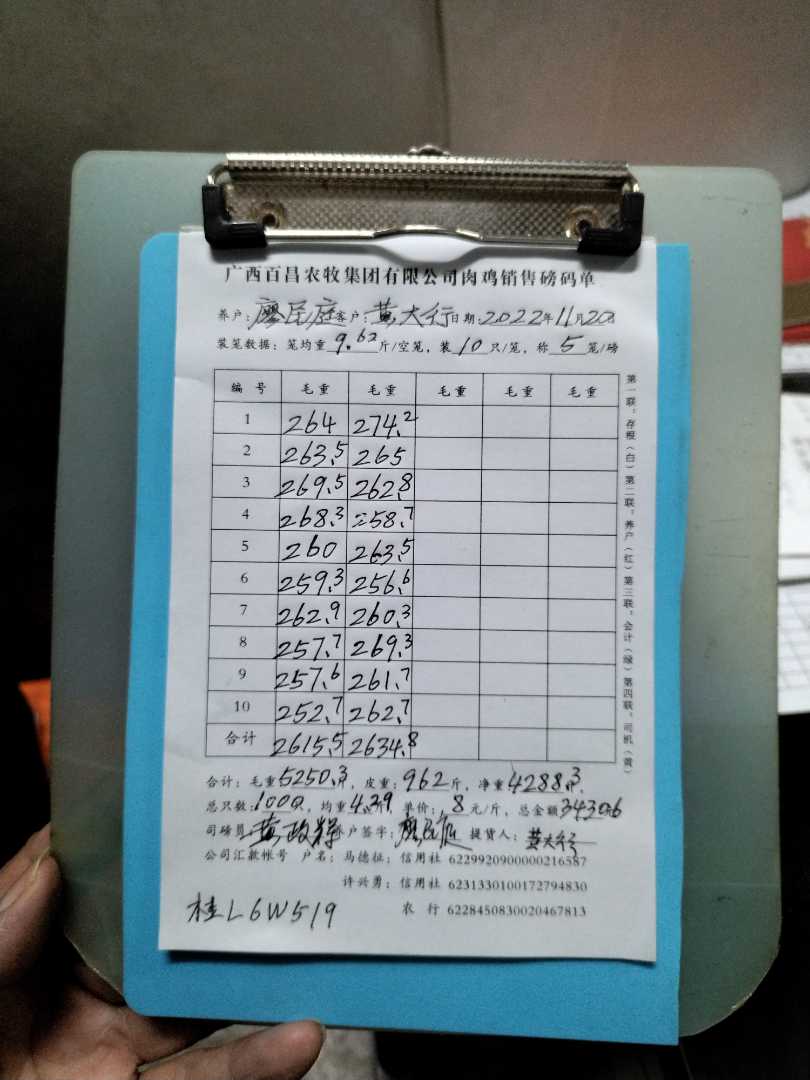 广西百昌农牧集团有限公司肉鸡销售磅码单
养户：廖民庭 客户：黄大行 日期：2022年11月20日
装笼数据：笼均重 9.62 斤/空笼，装 10 只/笼，称 5 笼/磅
编号 毛重 毛重 毛重 毛重 毛重
1 264 274.2
2 263.5 265
3 269.5 262.8
4 268.3 258.7
5 260 263.5
6 259.3 256.6
7 262.9 260.3
8 257.7 269.3
9 257.6 261.7
10 252.7 262.7
合计 2615.5 2634.8
合计：毛重5250.3斤，皮重：962斤，净重4288.3斤，
总只数：1000只，均重4.29斤，单价：8元/斤，总金额34306
司磅员 养户签字：廖民庭 提货人：黄大行
公司汇款帐号 户名：马德征：信用社 6229920900000216587
许兴勇：信用社 6231330100172794830
农行 6228450830020467813
桂L6W519
第一联：存根（白）第二联：养户（红）第三联：会计（绿）第四联：司机（黄）